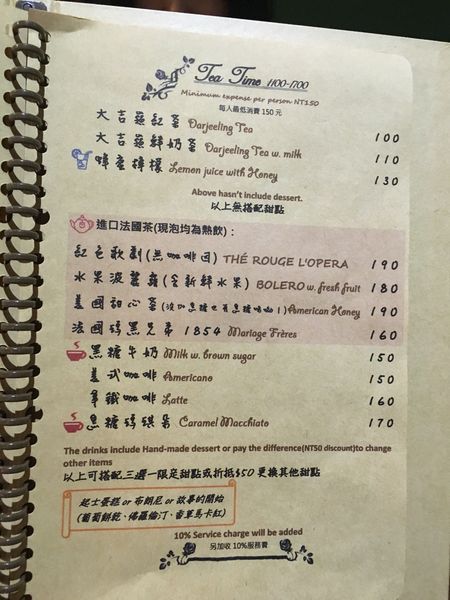 Tea Time 1400-1700
Minimum expense per person NT150
每人最低消費 150 元
大吉嶺紅茶 Darjeeling Tea 100
大吉嶺鮮奶茶 Darjeeling Tea w. milk 110
蜂蜜檸檬 Lemon juice with Honey 130
Above hasn't include dessert.
以上無搭配甜點
進口法國茶(現泡均為熱飲)：
紅色歌劇(無咖啡因) THÉ ROUGE L'OPERA 190
水果波麗露(含新鮮水果) BOLERO w. fresh fruit 180
美國甜心茶 American Honey 190
法國瑪黑兄弟 1854 Mariage Frères 160
黑糖牛奶 Milk w. brown sugar 150
美式咖啡 Americano 150
拿鐵咖啡 Latte 160
焦糖瑪琪朵 Caramel Macchiato 170
The drinks include Hand-made dessert or pay the difference(NT50 discount)to change
other items
以上可搭配三選一限定甜點或折抵$50 更換其他甜點
起士蛋糕 or 布朗尼 or 故事的開始
(葡萄餅乾、佛羅倫汀、雪茸馬卡紅)
10% Service charge will be added
另加收 10%服務費